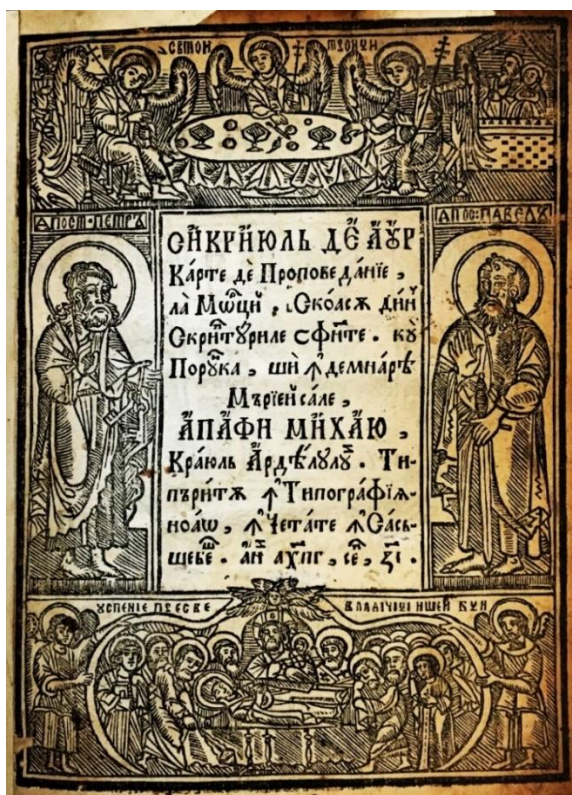 СВТОИ ТРОИЦИ
АПОСТ ПЕТРꙊ
АПОС ПАВЕЛꙊ
СИ́КРИЮЛЬ ДЕ А҆́ꙊР
Ка́рте дѐ Проповеда́нїе ,
ла̀ Мѡ́рци . Ско́лсѫ ди́н
Скрипту́риле сфи́те . кꙋ̀
Пору́нка , шѝ ꙟ҆демнарѣ
Мърїейсале ,
А҆ПА́ФИ МИХА́Ю ,
Кра́юль А҆рдѣ́лꙋлꙋ́й . Ти-
пъри́тѫ ꙟ҆ Типогра́фїѧ-
ноа́ѡ , ꙟ҆ Чета́те ꙟ҆ Са́сь-
шебе́ш . а҆́н ах҃пг , се́п , зі .
УСПЕНІЕ ПРЕСВЕ
ВЛАДИЧИЦИ НШЕЙ БЦИ